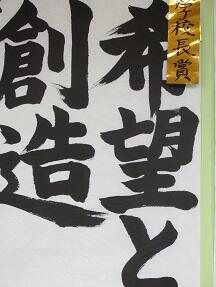 希望と
創造
学校長賞